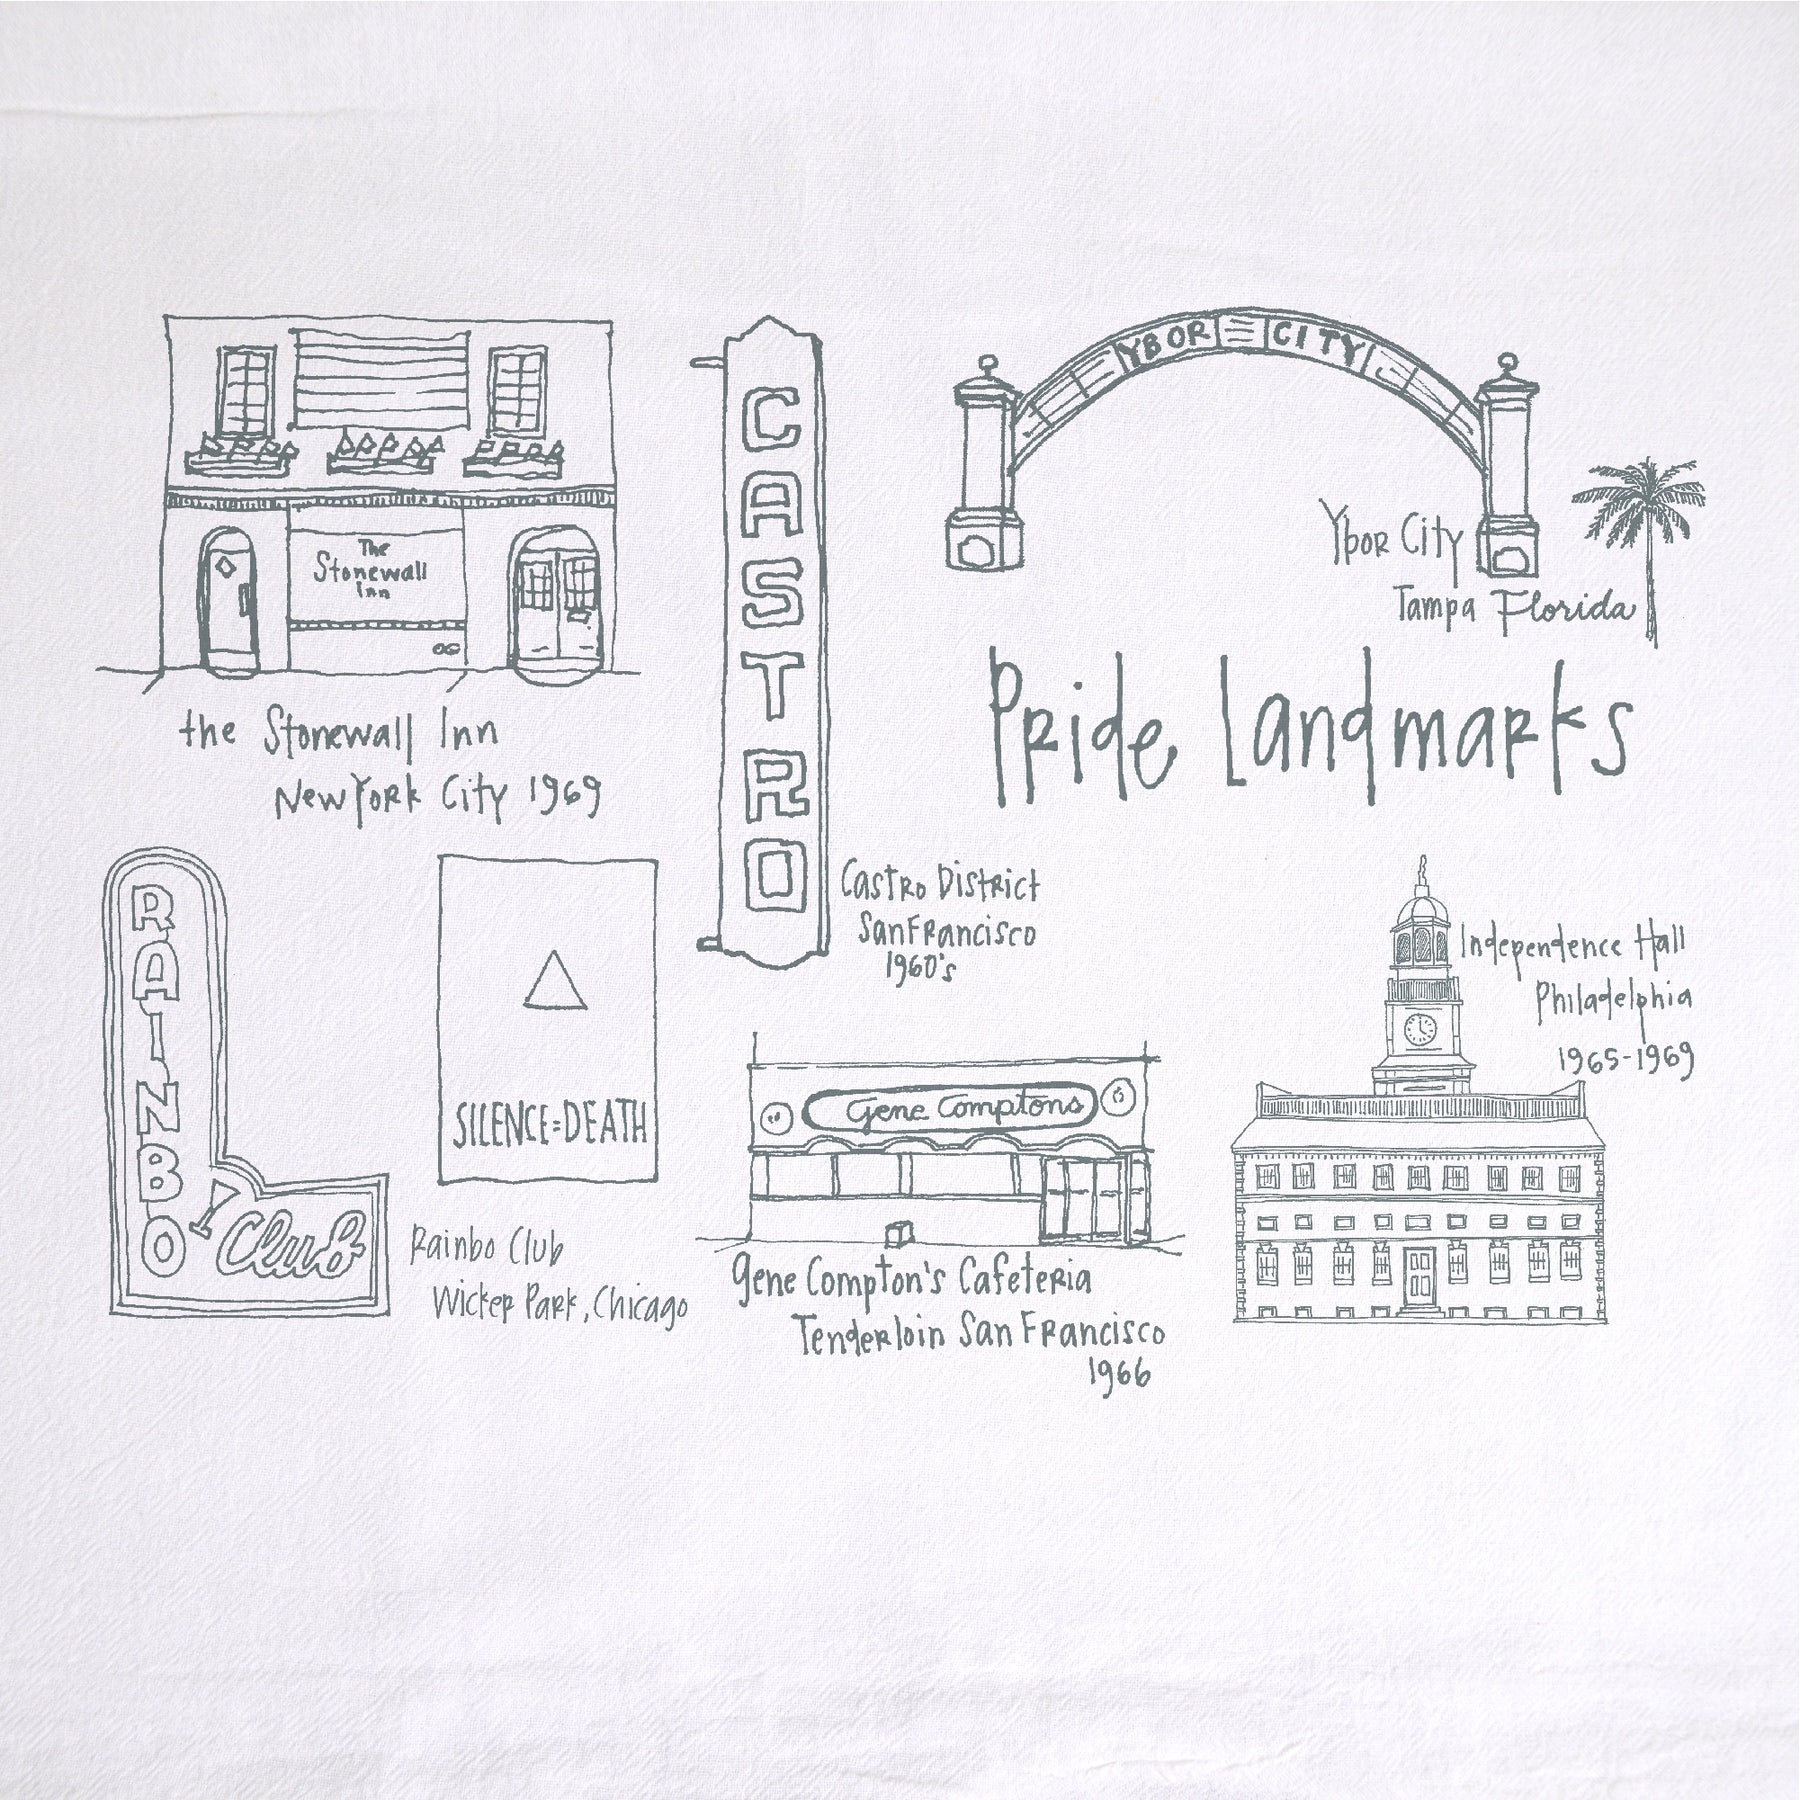 The
Stonewall
Inn
OG
the Stonewall Inn
New York City 1969
CASTRO
Castro District
San Francisco
1960's
YBOR CITY
Ybor City
Tampa Florida
Pride Landmarks
RAINBO
Club
Rainbo Club
Wicker Park, Chicago
SILENCE=DEATH
Gene Comptons
Gene Compton's Cafeteria
Tenderloin San Francisco
1966
Independence Hall
Philadelphia
1965-1969